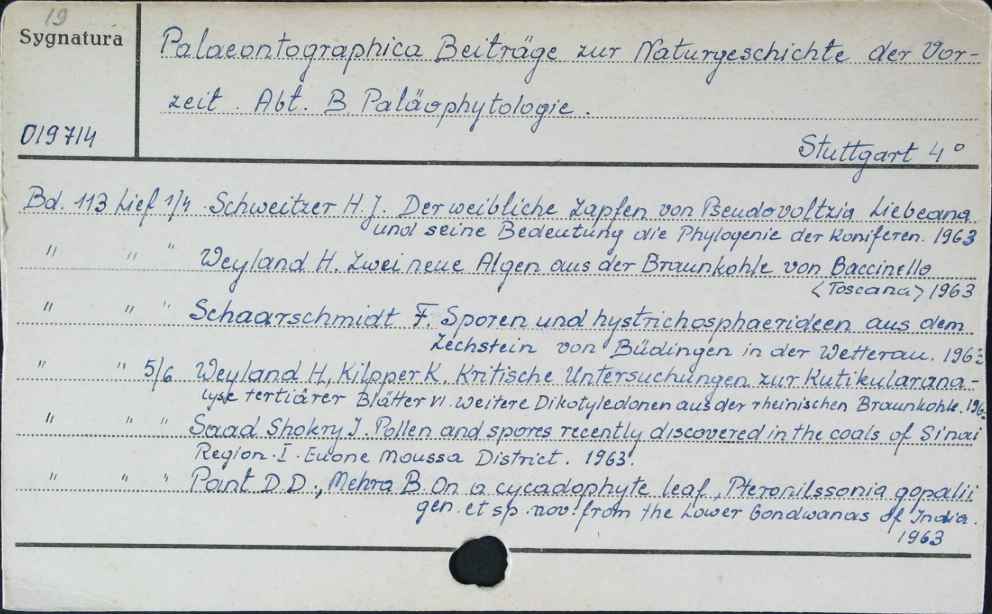 19
Sygnatura
019714
Palaeontographica Beiträge zur Naturgeschichte der Vor-
zeit. Abt. B Paläophytologie.
Stuttgart 4°
Bd. 113 Lief 1/4 Schweitzer H. J. Der weibliche Zapfen von Pseudovoltzia Liebeana
und seine Bedeutung die Phylogenie der Koniferen. 1963
" " " Weyland H. Zwei neue Algen aus der Braunkohle von Baccinello
<Toscana> 1963
" " " Schaarschmidt F. Sporen und hystrichosphaerideen aus dem
Zechstein von Büdingen in der Wetterau. 1963
" " 5/6 Weyland H., Kilpper K. Kritische Untersuchungen zur Kutikularana-
lyse tertiärer Blätter VI. Weitere Dikotyledonen aus der rheinischen Braunkohle. 196
" " " Saad Shokry I. Pollen and spores recently discovered in the coals of Sinai
Region. I. Euone Moussa District. 1963.
" " " Pant D.D., Mehra B. On a cycadophyte leaf, Pteronilssonia gopalii
gen. et sp. nov. from the Lower Gondwanas of India.
1963